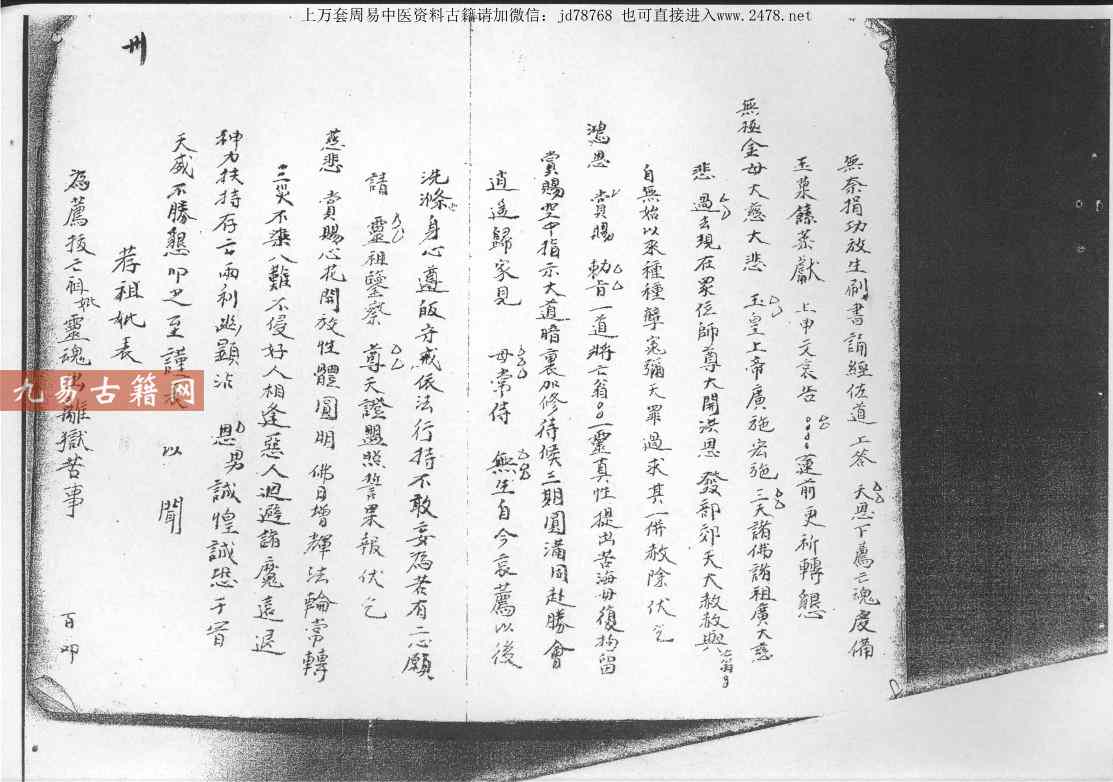 上万套周易中医资料古籍请加微信：jd78768 也可直接进入www.2478.net
無奈捐功放生刷書誦經佐道上答 天恩下薦亡魂虔備
玉菓蔬茶獻 上申文哀告 蓮前更祈轉懇
無極金母大慈大悲 玉皇上帝廣施宏 三天諸佛諸祖廣大慈
悲 過去現在眾位師尊大開洪恩 發部郊天大赦赦與亡翁
自無始以來種種孽冤彌天罪過求其一併赦除伏乞
鴻恩 賞賜 勅旨一道將亡翁 一靈真性提出苦海毋復拘留
賞賜空中指示大道暗裏加修待候三期圓滿同赴勝會
逍遥歸家見 母常侍 無生自今哀薦以後
洗滌身心遵皈守戒依法行持不敢妄為若有二心願
請 靈祖鑒察 尊天證盟照誓果報伏乞
慈悲 賞賜心花開放性體圓明 佛日增輝法輪常轉
三災不染八難不侵好人相逢惡人迴避諸魔遠退
神力扶持存亡兩利 顯沾 恩男 誠惶誠恐干冒
天威不勝懇叩之至謹表 以聞
荐祖妣表
為薦拔亡祖妣靈魂出離獄苦事 百叩
卅
九易古籍网